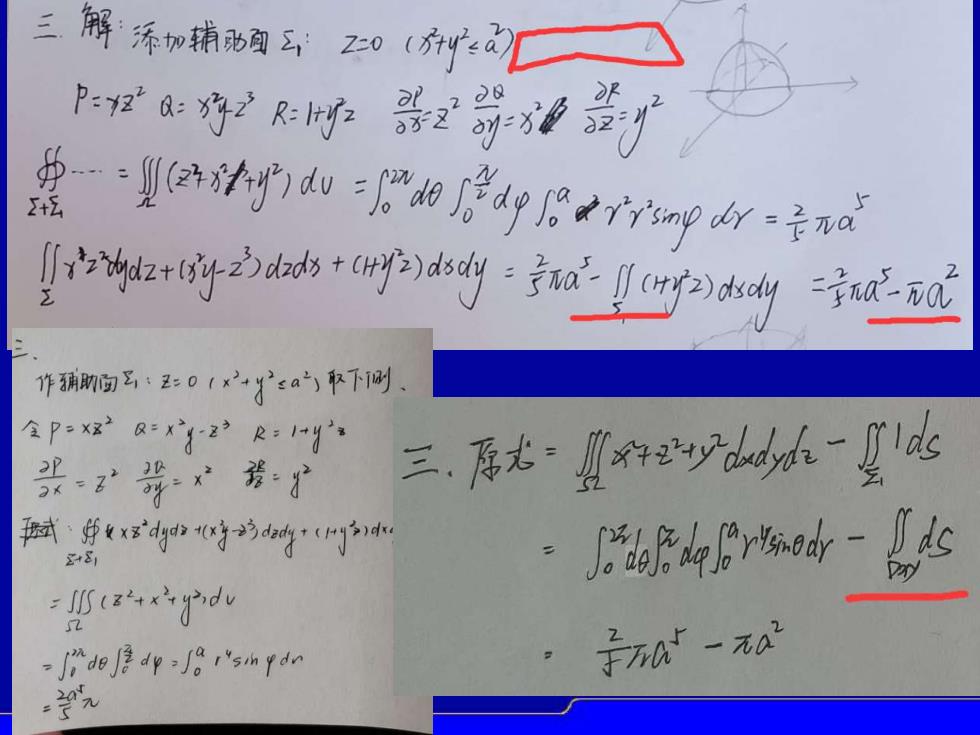 三. 解: 添加辅助面 Σ₁: Z=0 (x²+y²≤a²)
P=xz² Q=x²y-z³ R=1+y²z ∂P/∂x=z² ∂Q/∂y=x² ∂R/∂z=y²
∯_{Σ+Σ₁} ---- = ∭_Ω (z²+x²+y²) dv = ∫₀^{2π} dθ ∫₀^{π/2} dφ ∫₀^a r²r²sinφ dr = 2/5 πa⁵
∬_Σ xz²dydz+(x²y-z³)dzdx+(1+y²z)dxdy = 2/5 πa⁵ - ∬_{Σ₁} (1+y²z)dxdy = 2/5 πa⁵-πa²
三.
作辅助面Σ₁: z=0 (x²+y²≤a²) 取下侧.
令 P=xz² Q=x²y-z³ R=1+y²z
∂P/∂x=z² ∂Q/∂y=x² ∂R/∂z=y²
原式: ∯_{Σ+Σ₁} xz²dydz+(x²y-z³)dzdy+(1+y²z)dx
=∭_Ω (z²+x²+y²)dv
=∫₀^{2π} dθ ∫₀^{π/2} dφ=∫₀^a r⁴sinφdr
=2a⁵/5 π
三. 原式=∭_Ω x²+z²+y²dxdydz-∬_{Σ₁} 1ds
=∫₀^{2π} dθ ∫₀^{π/2} dφ ∫₀^a r⁴sinθdr-∬_{Dxy} ds
=2/5 πa⁵-πa²